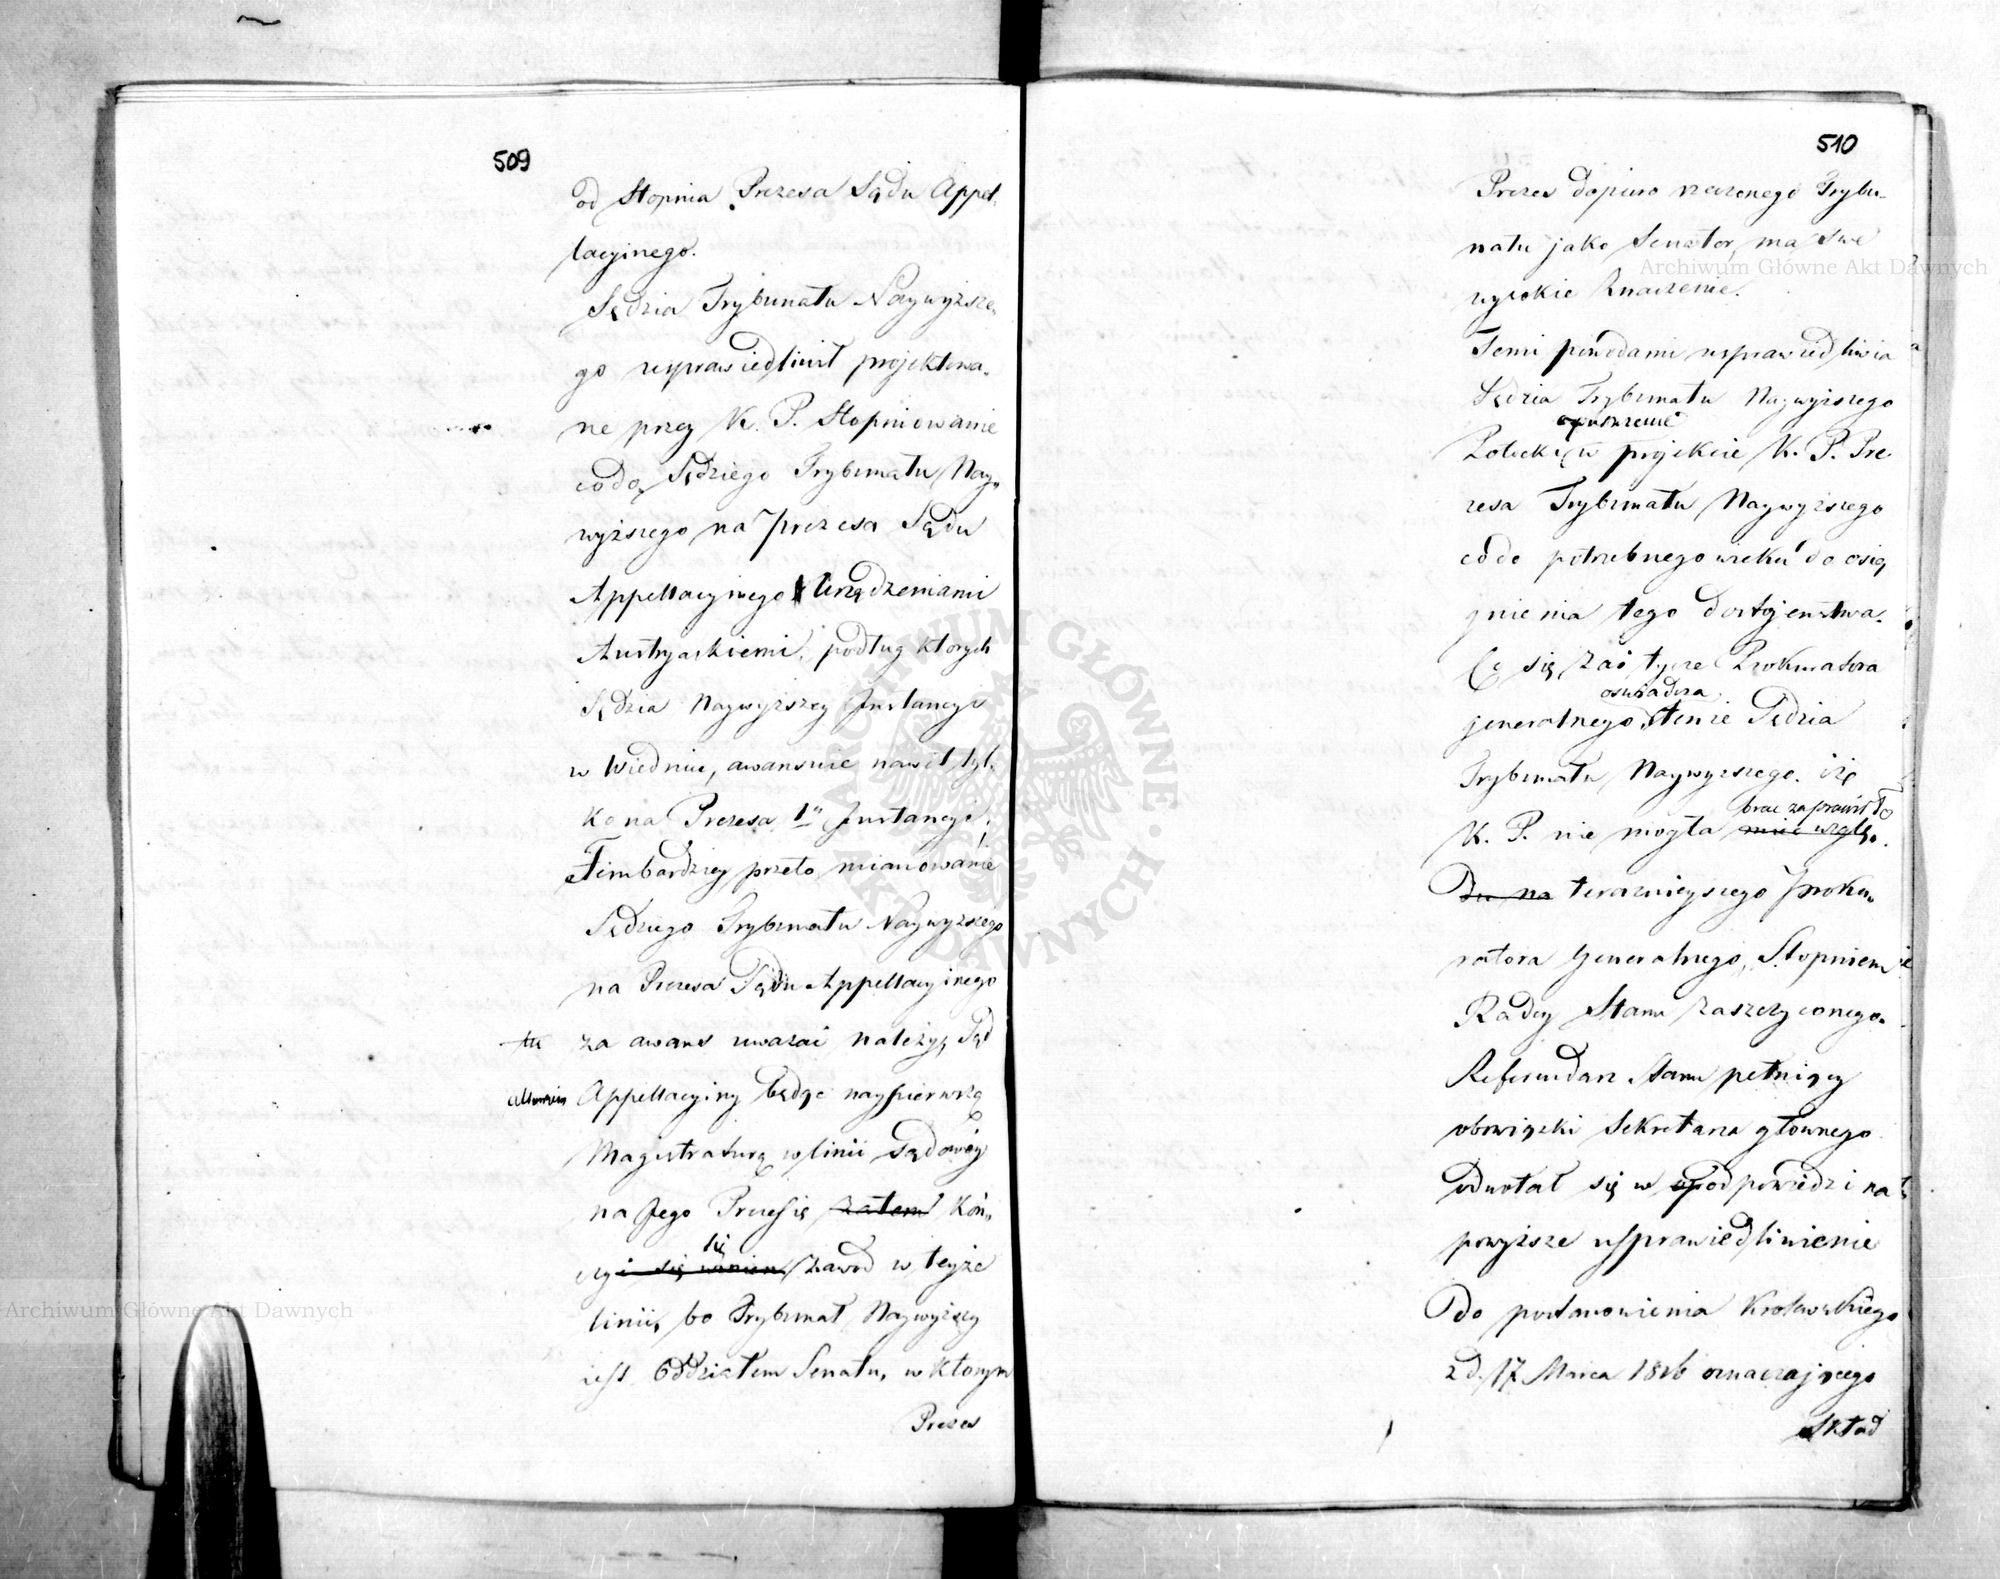 509
od Stopnia Prezesa Sądu Appel-
lacyinego.
Sędzia Trybunału Naywyższe-
go usprawiedliwił projektowa-
ne przez K. P. Stopniowanie
codo Sędziego Trybunału Nay-
wyższego na Prezesa Sądu
Appellacyinego Urządzeniami
Austryackiemi, podług których
Sędzia Naywyższey Instancyi
w Wiedniu, awansuie nawet tyl-
ko na Prezesa 1ey Instancyi;
Tembardziey przeto mianowanie
Sędziego Trybunału Naywyższego
na Prezesa Sądu Appellacyinego
za awans uważać należy, Sąd
Appellacyiny będąc naypierwszą
Magistraturą w linii sądowey
na Jego Prezesie zatem koń-
czy i się winien się zawod w teyże
linii, bo Trybunał Naywyższy
iest Oddziałem Senatu, w którym
Prezes
510
Prezes dopiero rzeczonego Trybu-
nału jako Senator, ma swe
wysokie Znaczenie.
Temi powodami usprawiedliwia
Sędzia Trybunału Naywyższego
opuszczenie
w projekcie K. P. Pre
zesa Trybunału Naywyższego
codo potrzebnego wieku do osią
gnienia tego dostojeństwa.
Co się zaś tycze Prokuratora
oswiadcza
generalnego, tenże Sędzia
Trybunału Naywyższego, iż
brac za prawidło
K. P. nie mogła mieć wzglę-
du na teraznieyszego Proku-
ratora Generalnego, Stopniem
Radcy Stanu zaszczyconego.
Referendarz Stanu pełniący
obowiązki Sekretarza głównego
odwołał się w odpowiedzi na
powyższe usprawiedliwienie
Do postanowienia Krolewskiego
z d. 17 Marca 1816 oznaczającego
Skład
Archiwum Główne Akt Dawnych
Archiwum Główne Akt Dawnych
ARCHIWUM GŁÓWNE AKT DAWNYCH